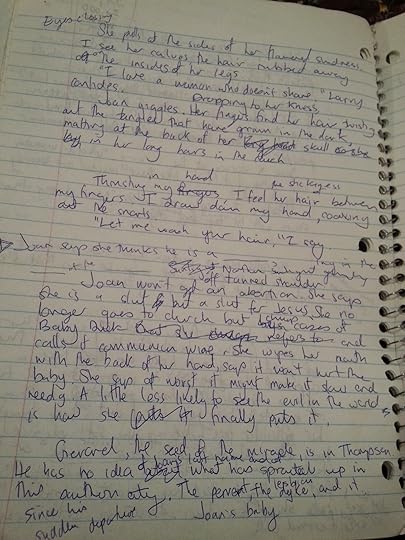 Eyes closing
She pulls at the sides of her flowered sundress.
I see her calves, the hair rubbed away
on the insides of her legs
"I love a woman who doesn't shave," Larry
confides. Dropping to her knees,
Joan giggles. Her fingers find her hair, twisting
out the tangles that have grown in the dark,
matting at the back of her skull
in her long hours in the
in hand the stickyness
Thrusting my fingers, I feel her hair between
my fingers I draw down my hand,
the snarls
"Let me wash your hair," I say.
Joan says she thinks he is a
off tanned shoulder
Joan won't get an abortion. She says
she is a slut but a slut for Jesus. She no
longer goes to church but cases of
Baby Duck and
calls it communion wine. She wipes her mouth
with the back of her hand, says it won't hurt the
baby. She says at worst it might make it slow and
needy. A little less likely to see the evil in the world
is how she finally puts it.
Gerard, the seed of the miracle, is in Thompson
He has no idea what has sprouted up in
this autumn city, The pervert, the dyke, and it,
since his lesbian
sudden departure Joan's baby